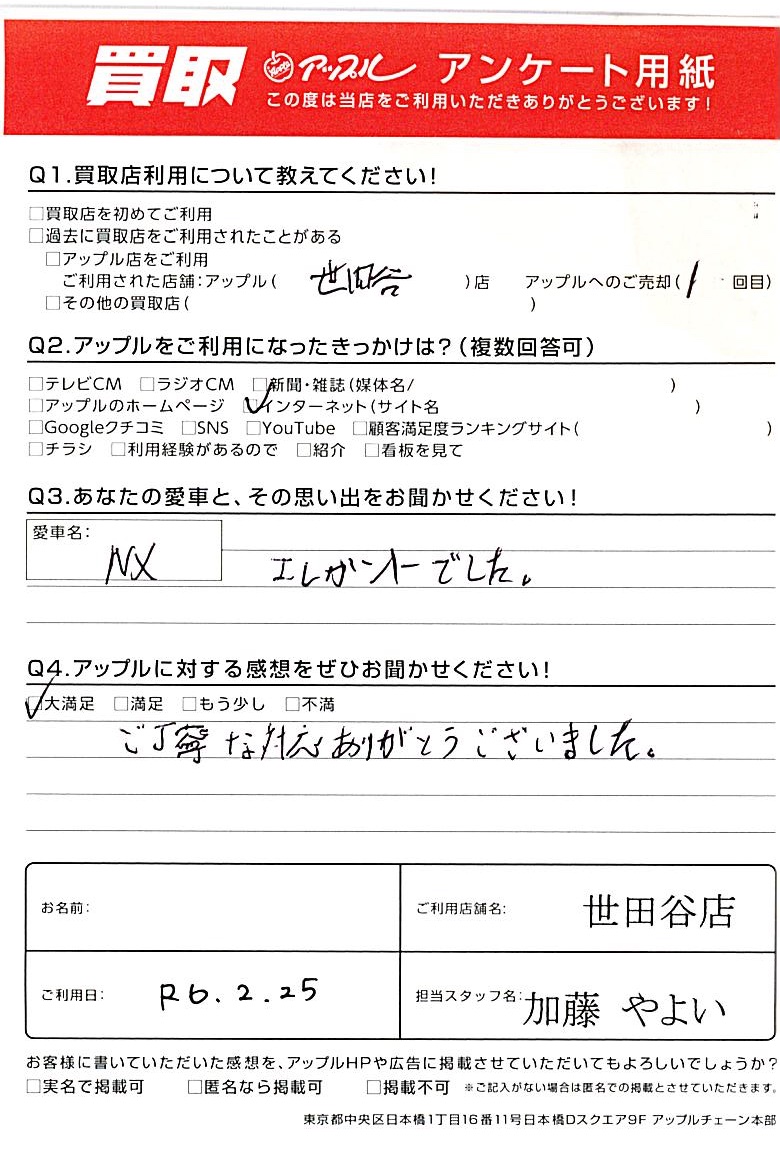 買取 アップル アンケート用紙
この度は当店をご利用いただきありがとうございます!
Q1.買取店利用について教えてください!
□買取店を初めてご利用
□過去に買取店をご利用されたことがある
□アップル店をご利用
ご利用された店舗:アップル( 世田谷 )店 アップルへのご売却( 1 回目)
□その他の買取店( )
Q2.アップルをご利用になったきっかけは?(複数回答可)
□テレビCM □ラジオCM □新聞・雑誌(媒体名/ )
□アップルのホームページ ☑インターネット(サイト名 )
□Googleクチコミ □SNS □YouTube □顧客満足度ランキングサイト( )
□チラシ □利用経験があるので □紹介 □看板を見て
Q3.あなたの愛車と、その思い出をお聞かせください!
愛車名:
NX エレガントでした。
Q4.アップルに対する感想をぜひお聞かせください!
☑大満足 □満足 □もう少し □不満
ご丁寧な対応ありがとうございました。
お名前: ご利用店舗名: 世田谷店
ご利用日: R6.2.25 担当スタッフ名: 加藤 やよい
お客様に書いていただいた感想を、アップルHPや広告に掲載させていただいてもよろしいでしょうか?
□実名で掲載可 □匿名なら掲載可 □掲載不可 ※ご記入がない場合は匿名での掲載とさせていただきます。
東京都中央区日本橋1丁目16番11号日本橋Dスクエア9F アップルチェーン本部